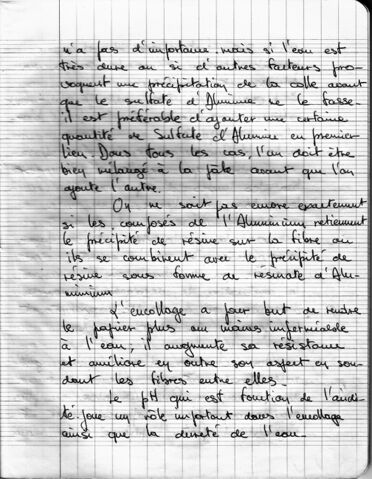 n'a pas d'importance, mais si l'eau est
très dure ou si d'autres facteurs pro-
voquent une précipitation de la colle avant
que le sulfate d'Alumine ne le fasse.
il est préférable d'ajouter une certaine
quantité de Sulfate d'Alumine en premier
lieu. Dans tous les cas, l'un doit être
bien mélangé à la pâte avant que l'on
ajoute l'autre.
On ne sait pas encore exactement
si les composés de l'Aluminium retiennent
le précipité de résine sur la fibre ou
ils se combinent avec le précipité de
résine sous forme de resinate d'Alu-
minium
L'encollage a pour but de rendre
le papier plus ou moins imperméable
à l'eau; il augmente sa résistance
et améliore en outre son aspect en sou-
dant les fibres entre elles.
Le pH qui est fonction de l'acidi-
té joue un rôle important dans l'encollage
ainsi que la dureté de l'eau.